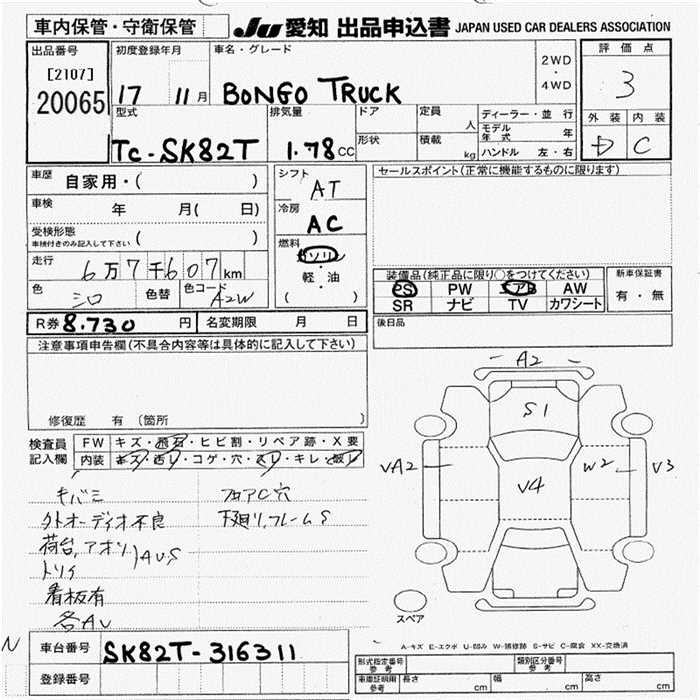 車内保管・守衛保管
JU 愛知 出品申込書 JAPAN USED CAR DEALERS ASSOCIATION
出品番号
[2107]
20065
初度登録年月
17 11月
車名・グレード
BONGO TRUCK
2WD
・
4WD
評価点
3
外装 内装
D C
型式
TC-SK82T
排気量
1.78 CC
ドア
形状
定員
人
積載
kg
ディーラー・並行
モデル年式 年
ハンドル 左・右
車歴 自家用・( )
車検 年 月( 日)
受検形態
車検付きのみ記入して下さい ( )
走行 6万7千607km
色 シロ 色替 色コード A2W
シフト
AT
冷房
AC
燃料
ガソリン
・
軽・油
( )
セールスポイント(正常に機能するものに限ります)
装備品(純正品に限り○をつけてください)
PS PW エアB AW
SR ナビ TV カワシート
新車保証書
有・無
R券 8.730 円 名変期限 月 日
後日品
注意事項申告欄(不具合内容等は具体的に記入して下さい)
修復歴 有 (箇所 )
検査員記入欄
FW キズ・飛石・ヒビ割・リペア跡・X要
内装 キズ・汚レ・コゲ・穴・スレ・キレ・破レ
キバミ
外オーディオ不良
荷台,アオリ
トリイ
AUS
看板有
各AU
フロアC穴
下廻リ,フレームS
A2
S1
VA2
V4
W2
V3
スペア
A-キズ E-エクボ U-凹み W-補修跡 S-サビ C-腐食 XX-交換済
N
車台番号 SK82T-316311
登録番号
形式指定番号 参考
類別区分番号 参考
車庫証明用 参考 長さ cm 幅 cm 高さ cm